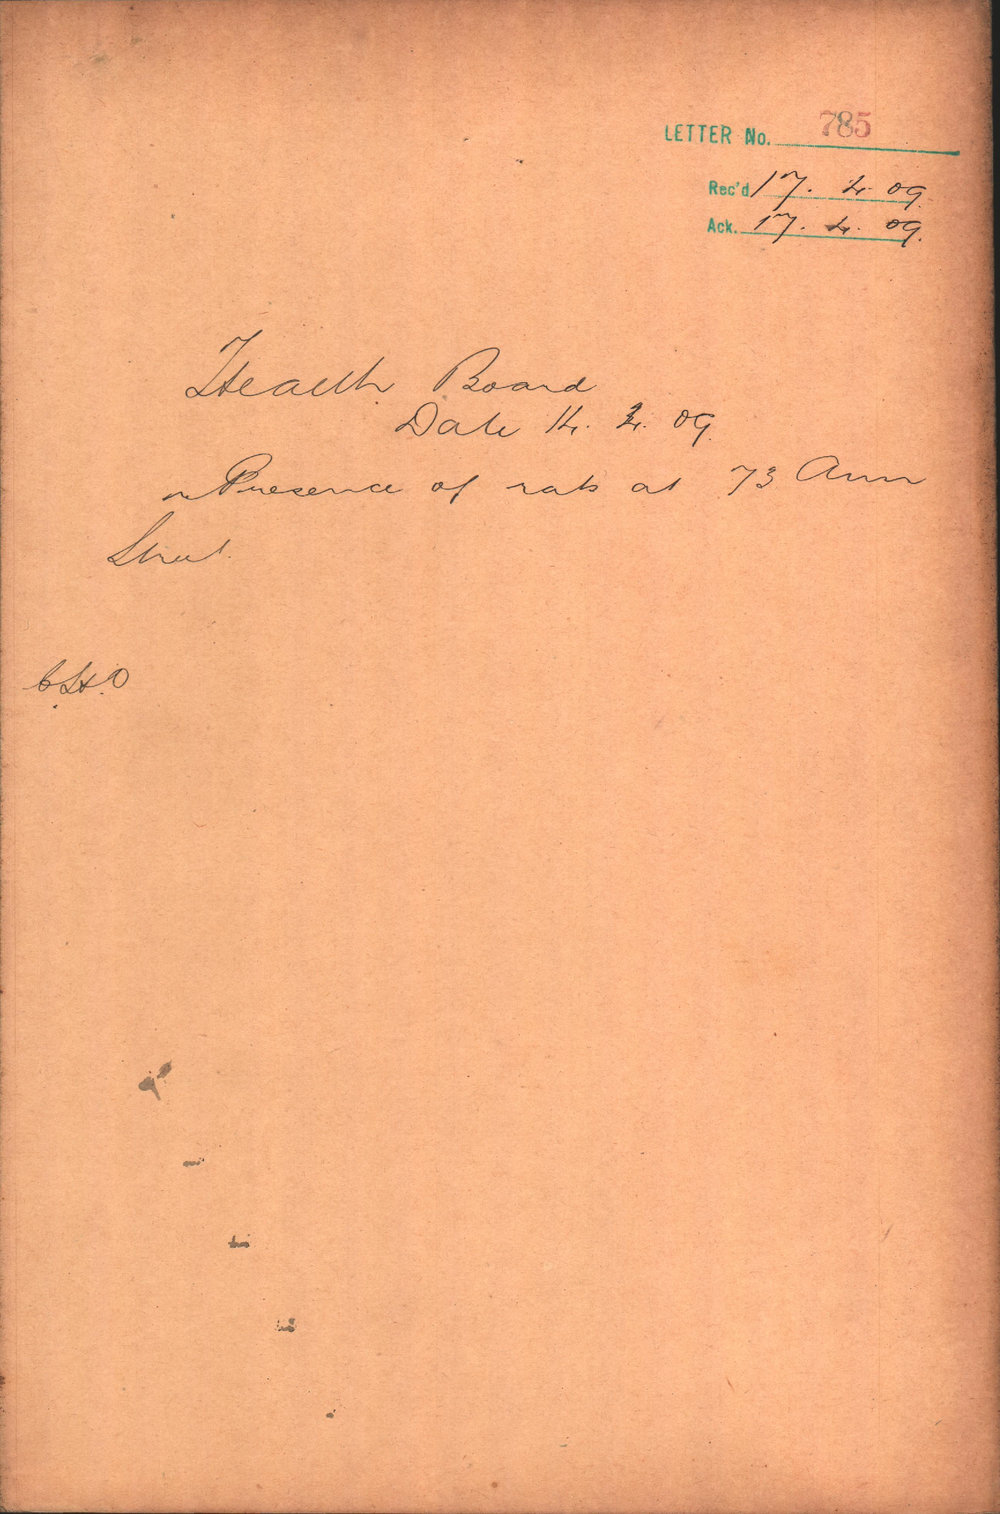 LETTER No. 785
Rec'd 17. 4. 09.
Ack. 17. 4. 09.
Health Board
Date 14. 4. 09.
re Presence of rats at 73 Ann
Street.
C.H.O